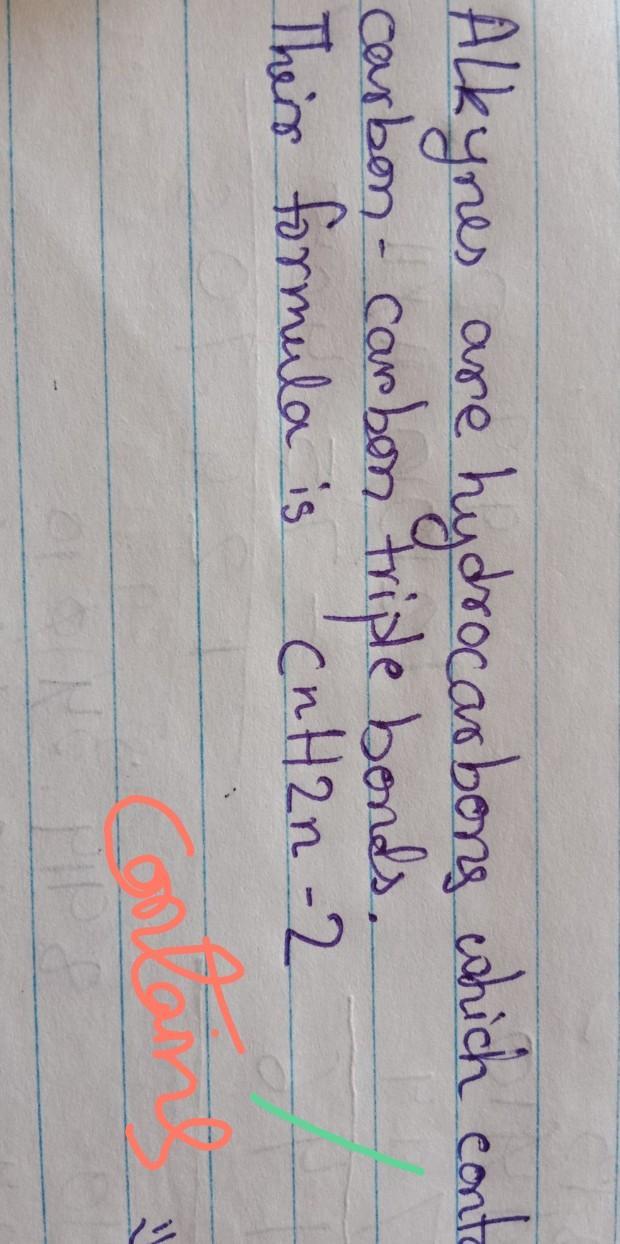 Alkynes are hydrocarbons which conta
carbon - carbon triple bonds.
Their formula is CnH2n-2
Contains